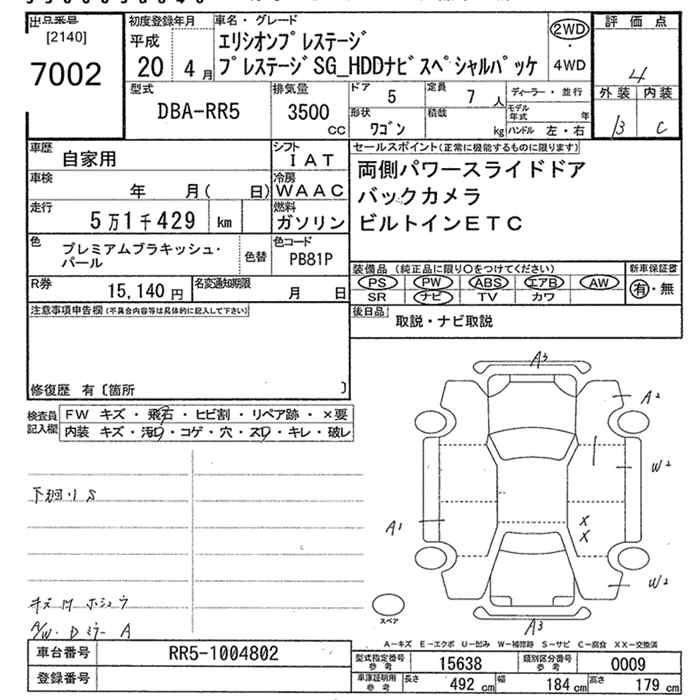 出品番号
[2140]
7002
初度登録年月
平成
20 4月
車名・グレード
エリシオンプレステージ
プレステージSG_HDDナビスペシャルパッケ
2WD
・
4WD
評価点
4
外装 内装
B C
型式
DBA-RR5
排気量
3500
cc
ドア
5
定員
7 人
形状
ワゴン
積載
kg
ディーラー・並行
モデル年式 年
ハンドル 左・右
車歴
自家用
シフト
IAT
車検
年 月( 日)
冷房
WAAC
走行
5万1千429 km
燃料
ガソリン
色
プレミアムブラキッシュ・
パール
色替
色コード
PB81P
R券
15,140 円
名変通知期限
月 日
セールスポイント(正常に機能するものに限ります)
両側パワースライドドア
バックカメラ
ビルトインETC
装備品 (純正品に限り○をつけてください)
PS PW ABS エアB AW
SR ナビ TV カワ
新車保証書
有・無
後日品
取説・ナビ取説
注意事項申告欄(不具合内容等は具体的に記入して下さい)
修復歴 有〔箇所 〕
検査員
記入欄
FW キズ・飛石・ヒビ割・リペア跡・×要
内装 キズ・汚れ・コゲ・穴・スレ・キレ・破レ
下廻りS
キズ凹 ホシュウ
A/W・Dミラー A
A3
A2
W2
A1
X
X
W2
A3
スペア
A−キズ E−エクボ U−凹み W−補修跡 S−サビ C−腐食 XX−交換済
車台番号
RR5-1004802
登録番号
型式指定番号
参考
15638
類別区分番号
参考
0009
車庫証明用
参考
長さ
492 cm
幅
184 cm
高さ
179 cm